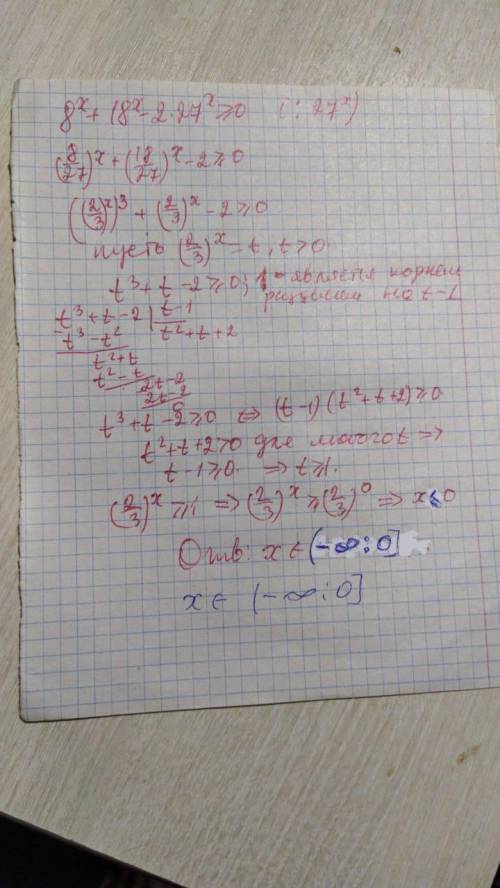 8^x + 18^x - 2·27^x ≥ 0 (: 27^x)
(8/27)^x + (18/27)^x - 2 ≥ 0
((2/3)^x)^3 + (2/3)^x - 2 ≥ 0
пусть (2/3)^x = t, t > 0
t^3 + t - 2 ≥ 0; 1 - является корнем
на t-1
t^3 + t - 2 | t - 1
- t^3 - t^2 t^2 + t + 2
t^2 + t
t^2 - t
2t - 2
2t - 2
0
t^3 + t - 2 ≥ 0 ⇔ (t-1)(t^2+t+2) ≥ 0
t^2 + t + 2 > 0 для любого t ⇒
t - 1 ≥ 0 ⇒ t ≥ 1.
(2/3)^x ≥ 1 ⇒ (2/3)^x ≥ (2/3)^0 ⇒ x ≤ 0
Отв: x ∈ (-∞; 0]
x ∈ (-∞; 0]